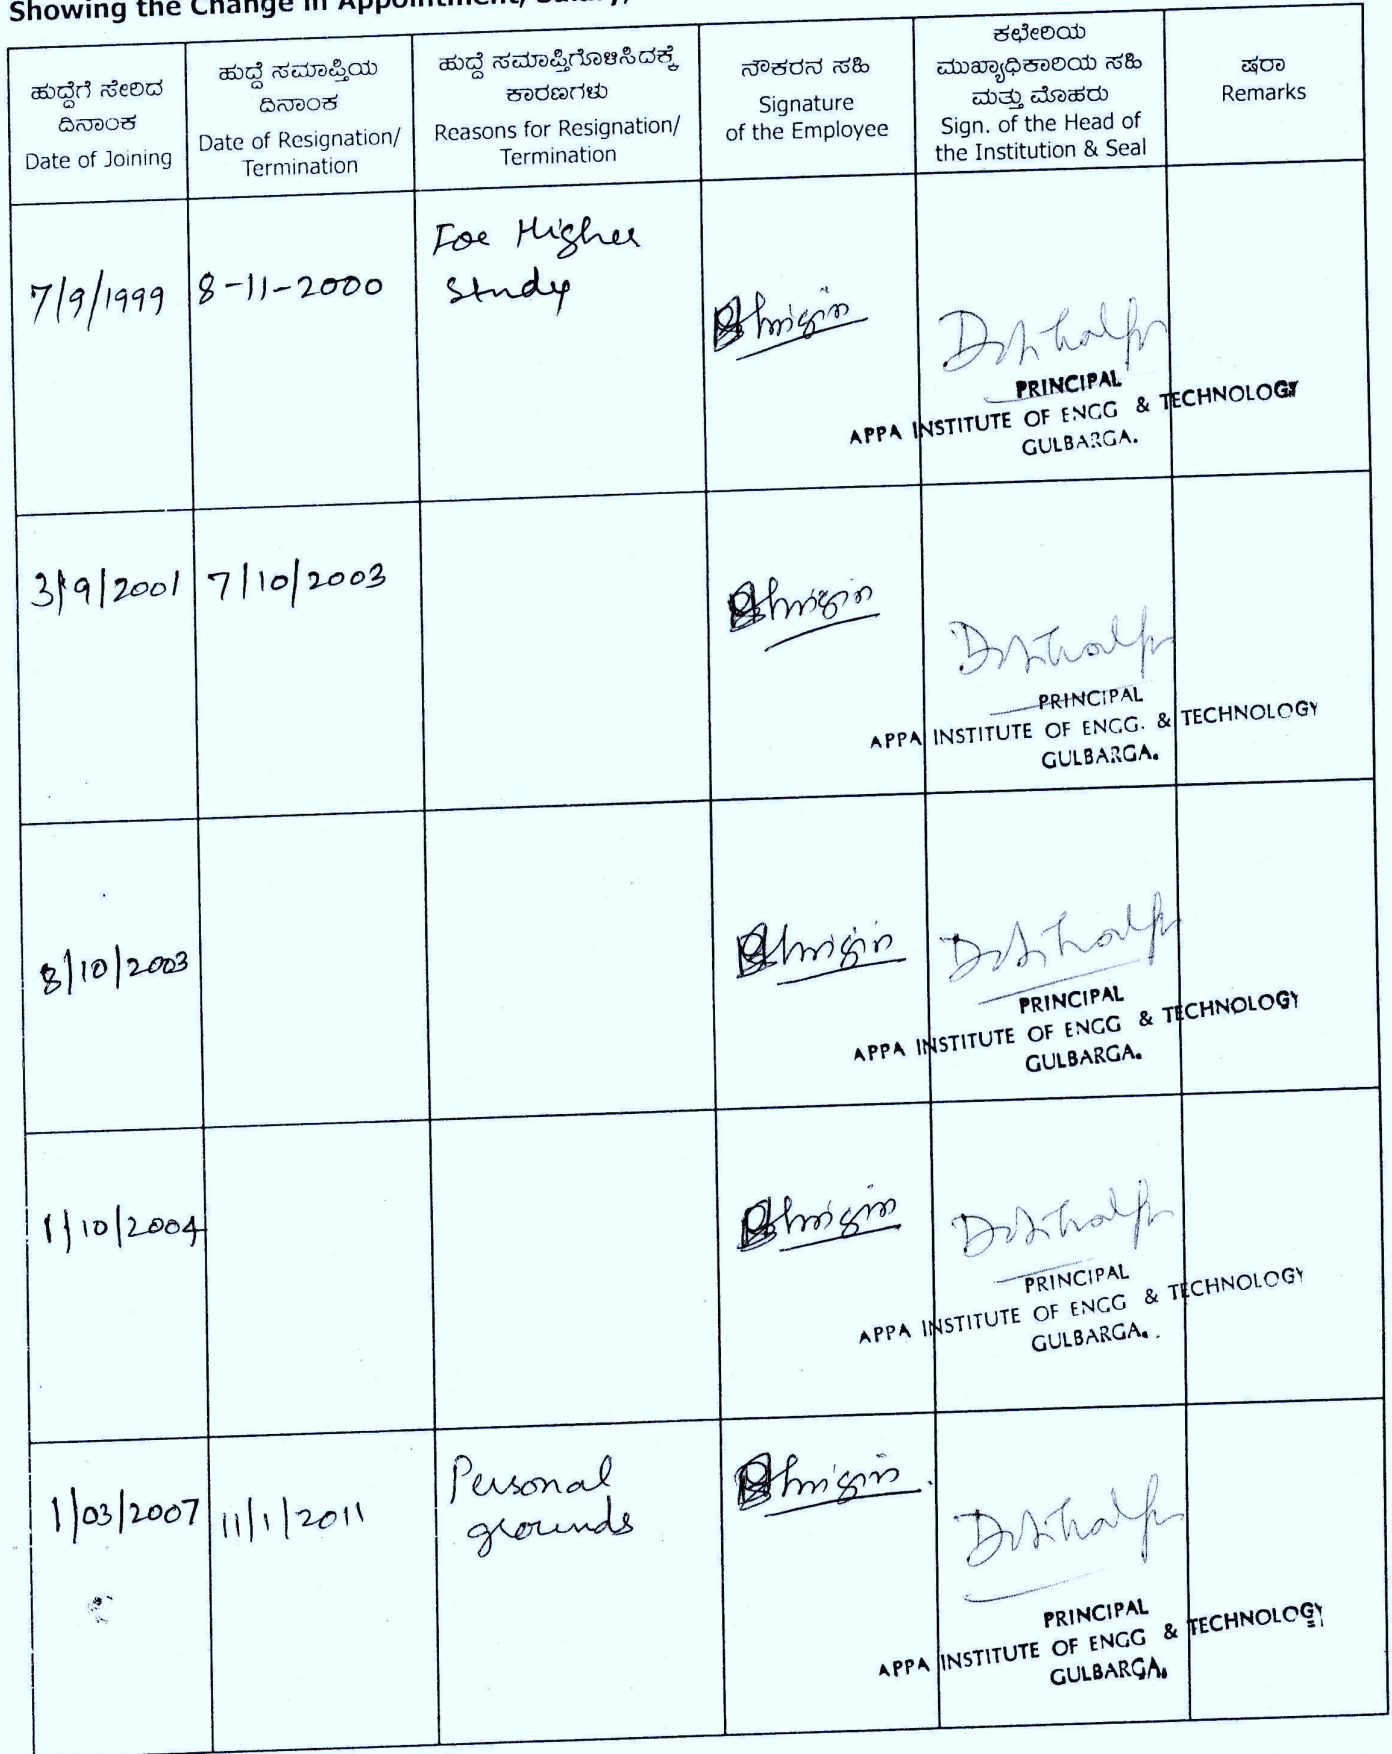 Showing the Change in Appointment, Salary,
ಹುದ್ದೆಗೆ ಸೇರಿದ
ದಿನಾಂಕ
Date of Joining
ಹುದ್ದೆ ಸಮಾಪ್ತಿಯ
ದಿನಾಂಕ
Date of Resignation/
Termination
ಹುದ್ದೆ ಸಮಾಪ್ತಿಗೊಳಿಸಿದಕ್ಕೆ
ಕಾರಣಗಳು
Reasons for Resignation/
Termination
ನೌಕರನ ಸಹಿ
Signature
of the Employee
ಕಛೇರಿಯ
ಮುಖ್ಯಾಧಿಕಾರಿಯ ಸಹಿ
ಮತ್ತು ಮೊಹರು
Sign. of the Head of
the Institution & Seal
ಷರಾ
Remarks
7/9/1999
8-11-2000
For Higher
Study
PRINCIPAL
APPA INSTITUTE OF ENGG & TECHNOLOGY
GULBARGA.
3/9/2001
7/10/2003
PRINCIPAL
APPA INSTITUTE OF ENGG. & TECHNOLOGY
GULBARGA.
8/10/2003
PRINCIPAL
APPA INSTITUTE OF ENGG & TECHNOLOGY
GULBARGA.
1/10/2004
PRINCIPAL
APPA INSTITUTE OF ENGG & TECHNOLOGY
GULBARGA.
1/03/2007
11/1/2011
Personal
grounds
PRINCIPAL
APPA INSTITUTE OF ENGG & TECHNOLOGY
GULBARGA.